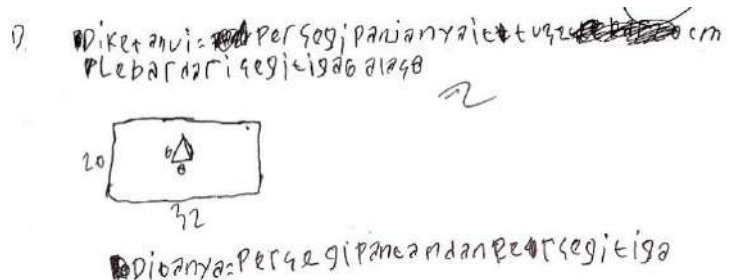 D. Diketahui = Persegi panjangnya itu 32 cm
Lebar dari segitiga 6 alas 8
20
6
8
32
Ditanya = Persegi pancandan persegitiga